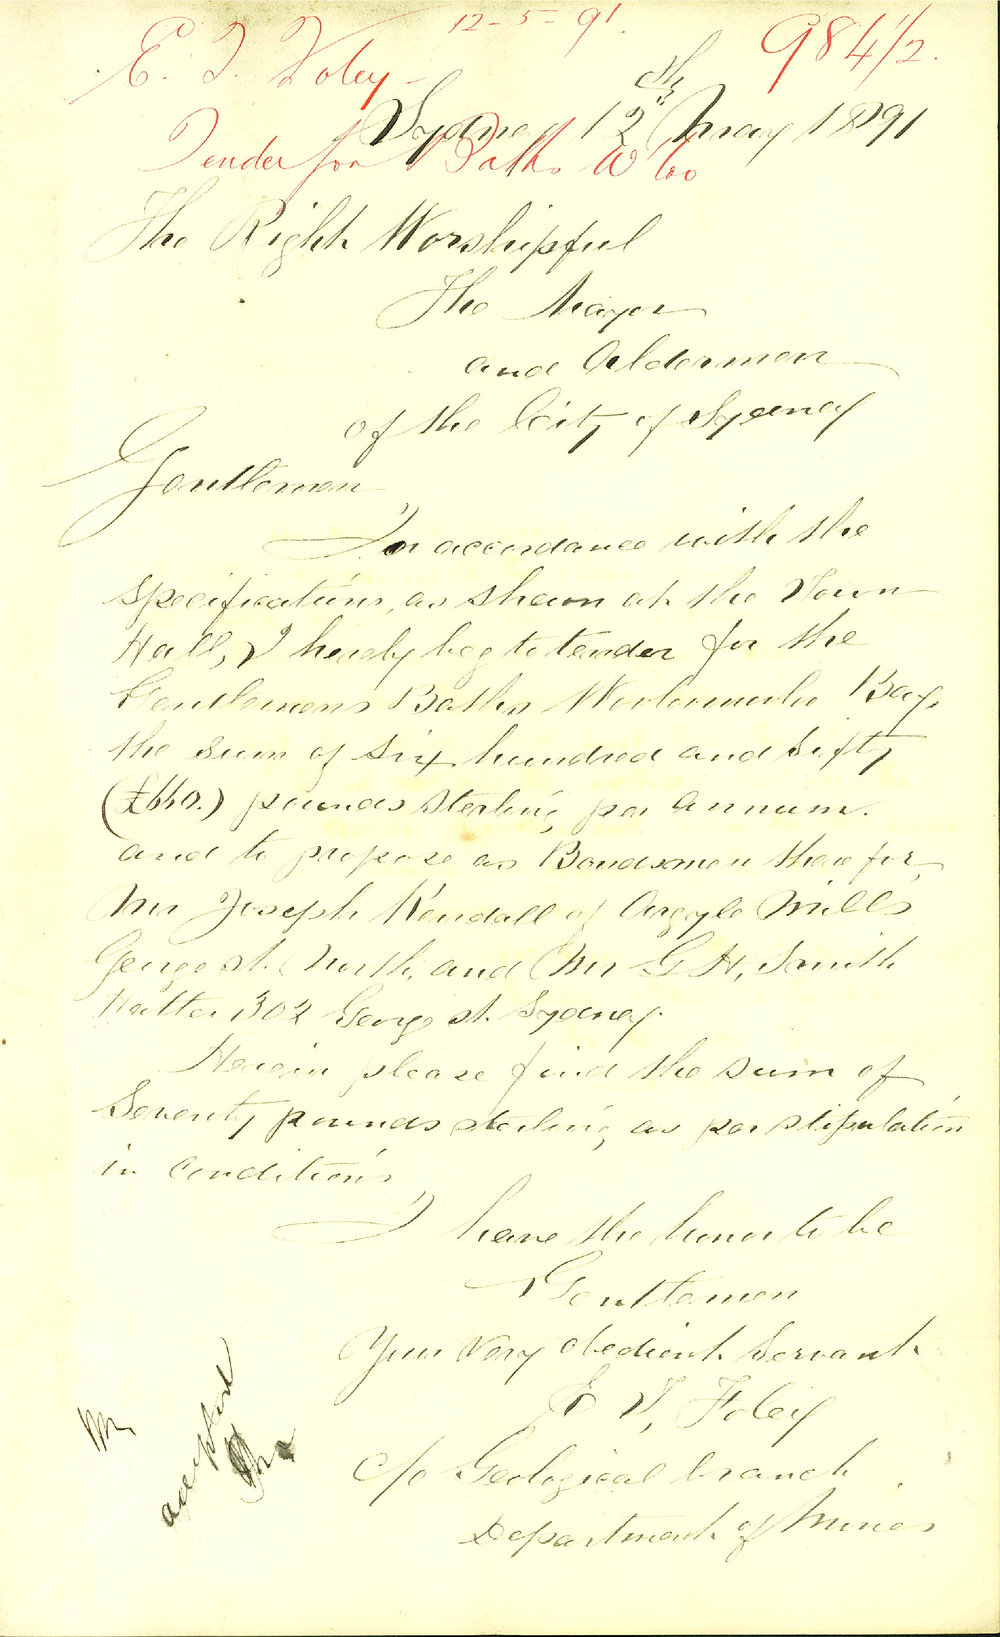 12-5-91.
984/2.
E. T. Foley
Sydney 12th May 1891
Tender for Baths W'loo
The Right Worshipful
The Mayor
and Aldermen
of the City of Sydney
Gentlemen
In accordance with the
specifications, as shewn at the Town
Hall, I hereby beg to tender for the
Gentlemens Baths Woolloomooloo Bay,
the sum of six hundred and sixty
(£660.) pounds sterling per annum.
and to propose as Bondsmen therefor
Mr Joseph Kendall of Argyle Mills
George st. North, and Mr G H, Smith
Hatter 302 George st. Sydney.
Herein please find the sum of
Seventy pounds sterling as per stipulation
in Conditions
I have the honor to be
Gentlemen
Your Very obedient Servant
E T, Foley
c/o Geological branch
Department of Mines
accepted